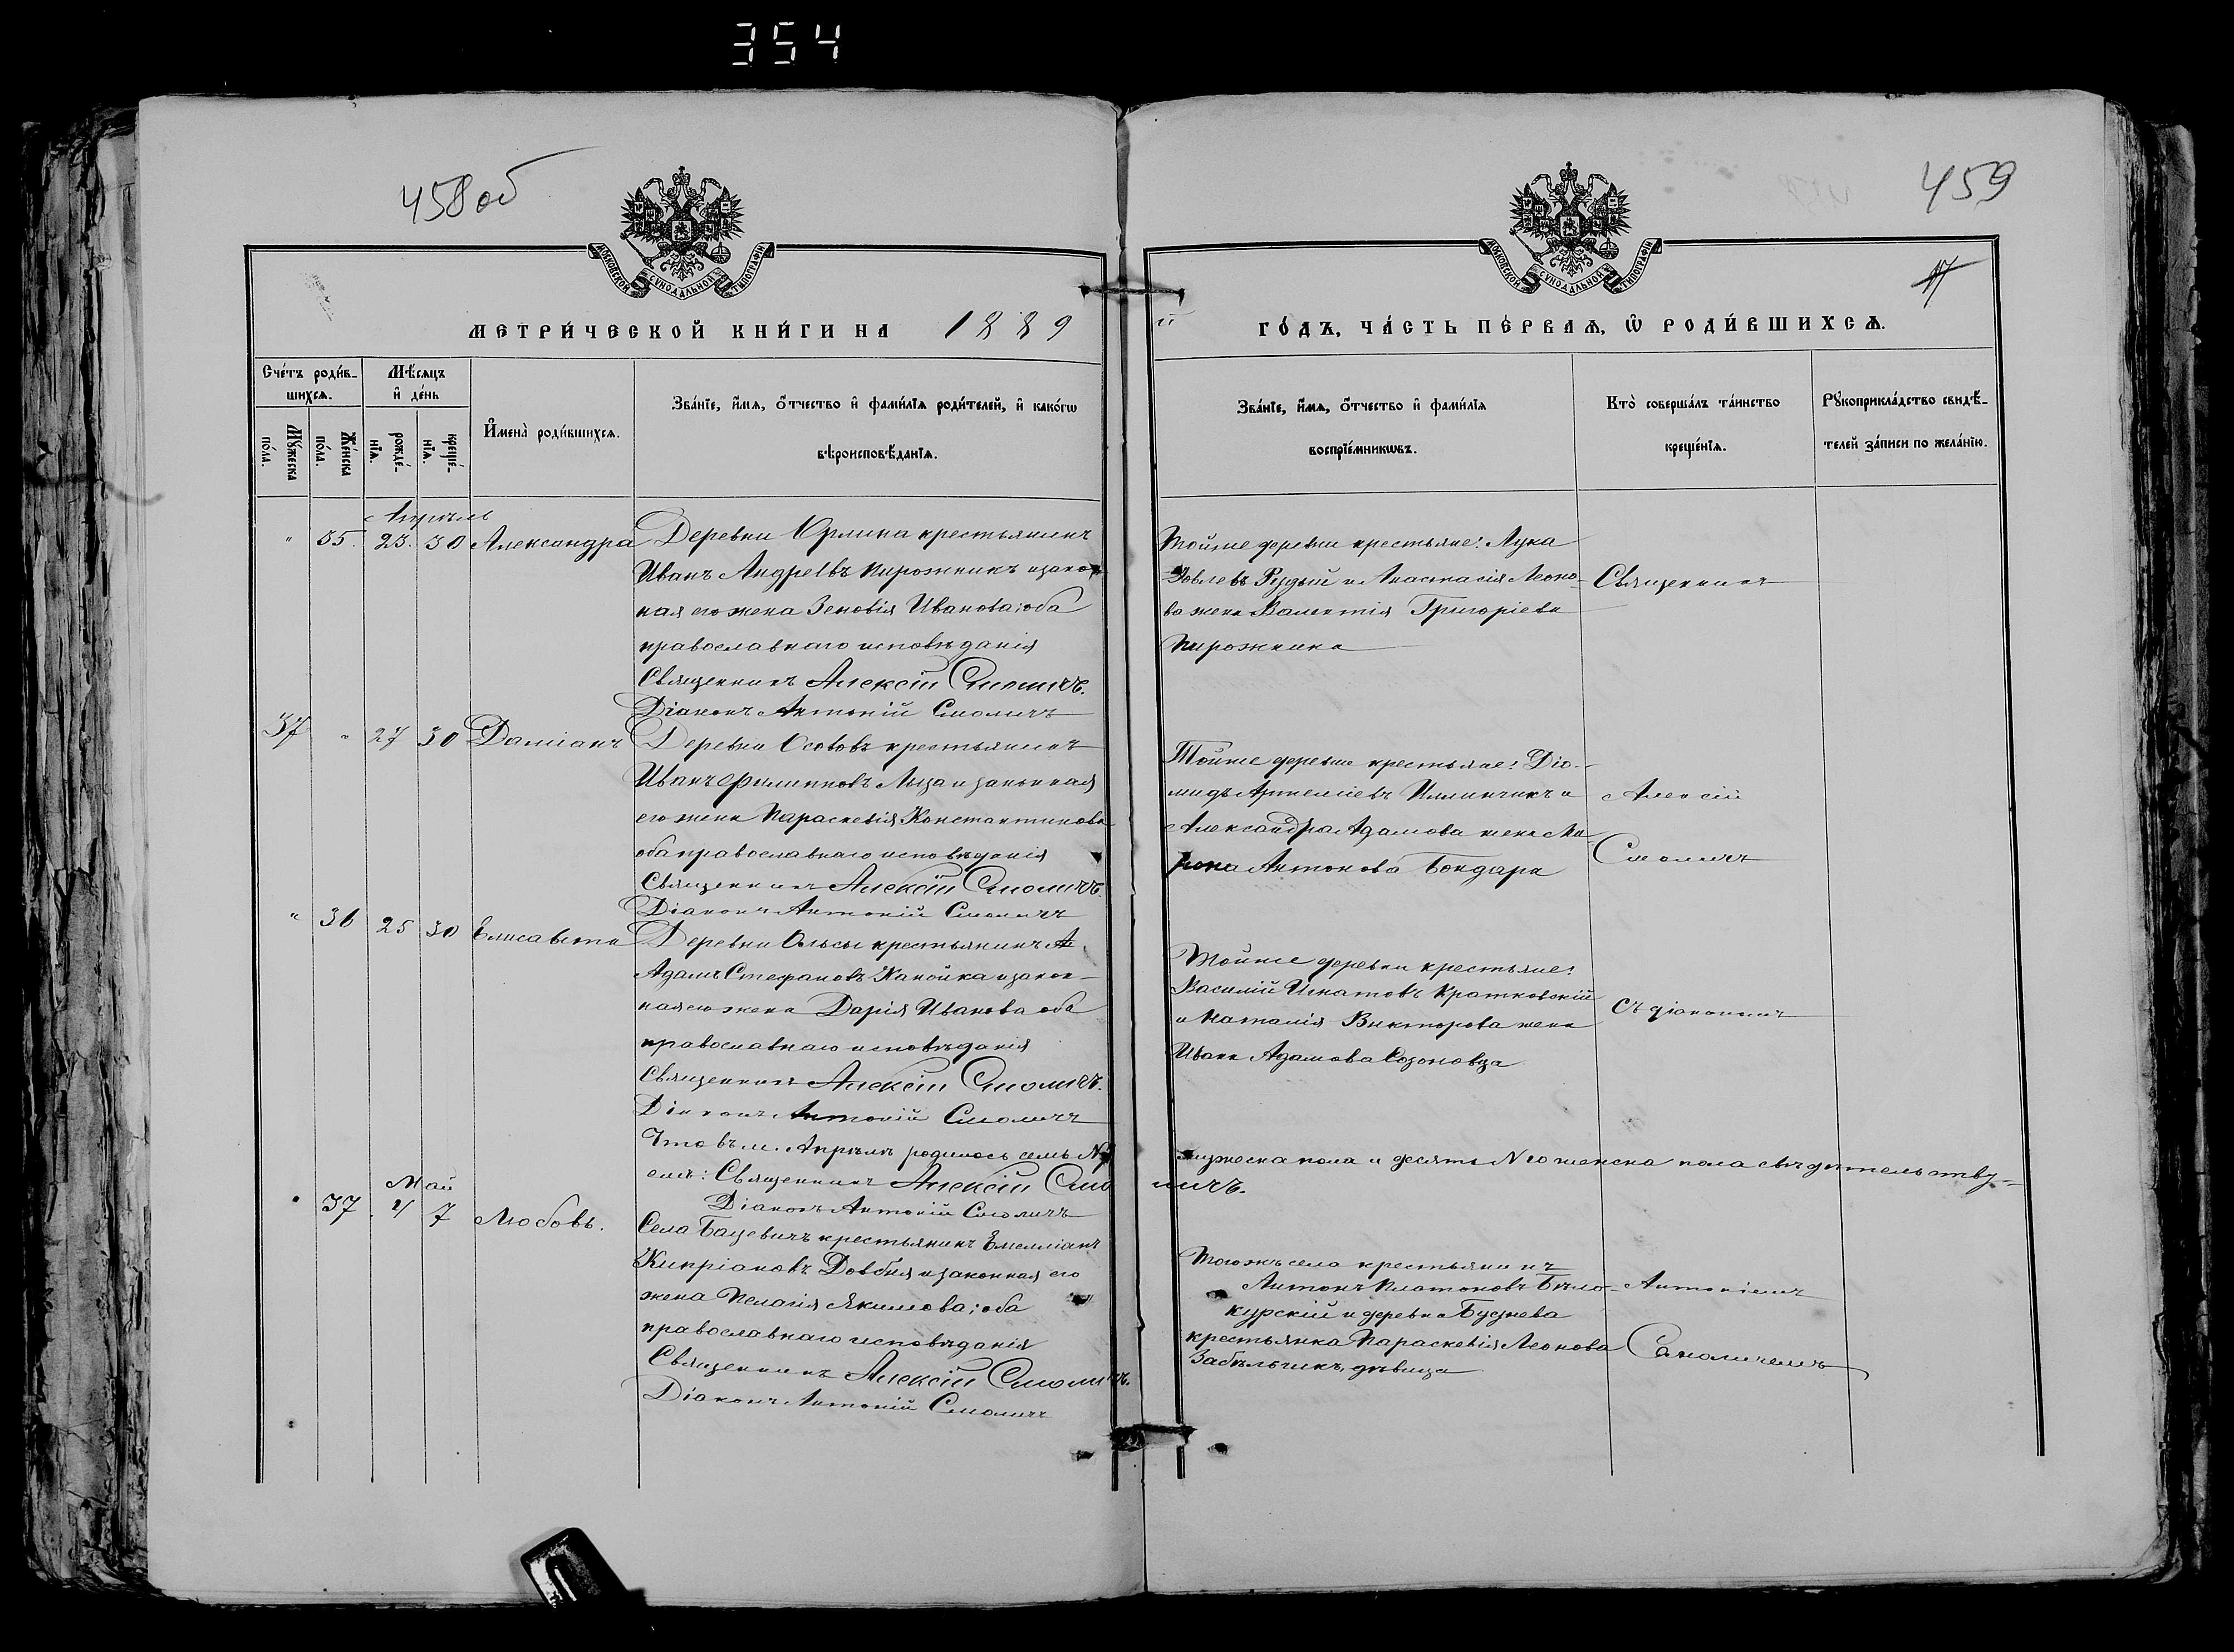 354
458 об
459
МОСКОВСКОЙ СѴНОДАЛЬНОЙ ТИПОГРАФІИ
МОСКОВСКОЙ СѴНОДАЛЬНОЙ ТИПОГРАФІИ
17
МЕТРИ́ЧЕСКОЙ КНИ́ГИ НА 1889
й ГО́ДЪ, ЧА́СТЬ ПЕ́РВАѦ, Ѡ РОДИ́ВШИХСѦ.
Сче́тъ роди́в-
шихсѧ.
Мѣ́сѧцъ
и҆ де́нь
Мꙋ́жеска
по́ла.
Же́нска
по́ла.
рожде́-
нїѧ.
креще́-
нїѧ.
И҆мена̀ роди́вшихсѧ.
Зва́нїе, и҆́мѧ, ѻ҆́тчество и҆ фами́лїѧ роди́телей, и҆ како́гѡ
вѣроисповѣ́данїѧ.
Зва́нїе, и҆́мѧ, ѻ҆́тчество и҆ фами́лїѧ
воспрїе́мникѡвъ.
Кто̀ соверша́лъ та́инство
креще́нїѧ.
Рꙋкоприкла́дство свидѣ́-
телей за́писи по жела́нїю.
Апрѣль
" 35. 23. 30 Александра
Деревни крестьянинъ
Иванъ Андреевъ Пирожникъ и закон
ная его жена Зеновія Иванова; оба
православнаго исповѣданія
Священникъ Алексій Смоличъ.
Діаконъ Антоній Смоличъ
Тойже деревни крестьяне: Лука
и Анастасія Леоно-
ва жена Валентія Григоріева
Пирожника
Священникъ
37 " 27 30 Даміанъ
Деревни Осовокъ крестьянинъ
Иванъ Филипповъ Лыза и законная
его жена Параскевія Константинова
оба православнаго исповѣданія
Священникъ Алексій Смоличъ.
Діаконъ Антоній Смоличъ
Тойже деревни крестьяне: Діо-
мидъ Артеміевъ и
Александра Адамова жена Ми-
рона Антонова Бондаря
Алексій
Смоличъ
" 36 25 30 Елисавета
Деревни Ольсы крестьянинъ А
Адамъ Стефановъ Канойка и закон-
ная его жена Дарія Иванова оба
православнаго исповѣданія
Священникъ Алексій Смоличъ.
Діаконъ Антоній Смоличъ
Тойже деревни крестьяне:
Василій Игнатовъ Кратковскій
и Наталія Викторова жена
Ивана Адамова Созоновца
съ діакономъ
Что въ м. Апрѣлѣ родилось семь N7 мужеска пола и десять N10 женска пола свидѣтельству-
емъ: Священникъ Алексій Смоличъ.
Діаконъ Антоній Смоличъ
Май
" 37 4 7 Любовь.
Села Бацевичъ крестьянинъ Емеліанъ
Кипріановъ Довбня и законная его
жена Пелагія Якимова; оба
православнаго исповѣданія
Священникъ Алексій Смоличъ.
Діаконъ Антоній Смоличъ
Тогожъ села крестьянинъ
Антонъ Платоновъ Бѣло-
курскій и деревни Буднева
крестьянка Параскевія Леонова
Забѣльчикъ дѣвица
Антоніемъ
Смоличемъ